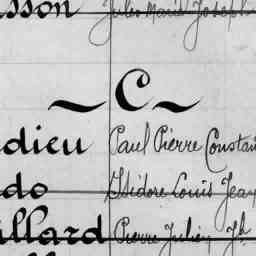 sson Jules Marie Joseph
~ C ~
dieu Paul Pierre Constan
do Isidore Louis Jean
illard Pierre Julien Jh